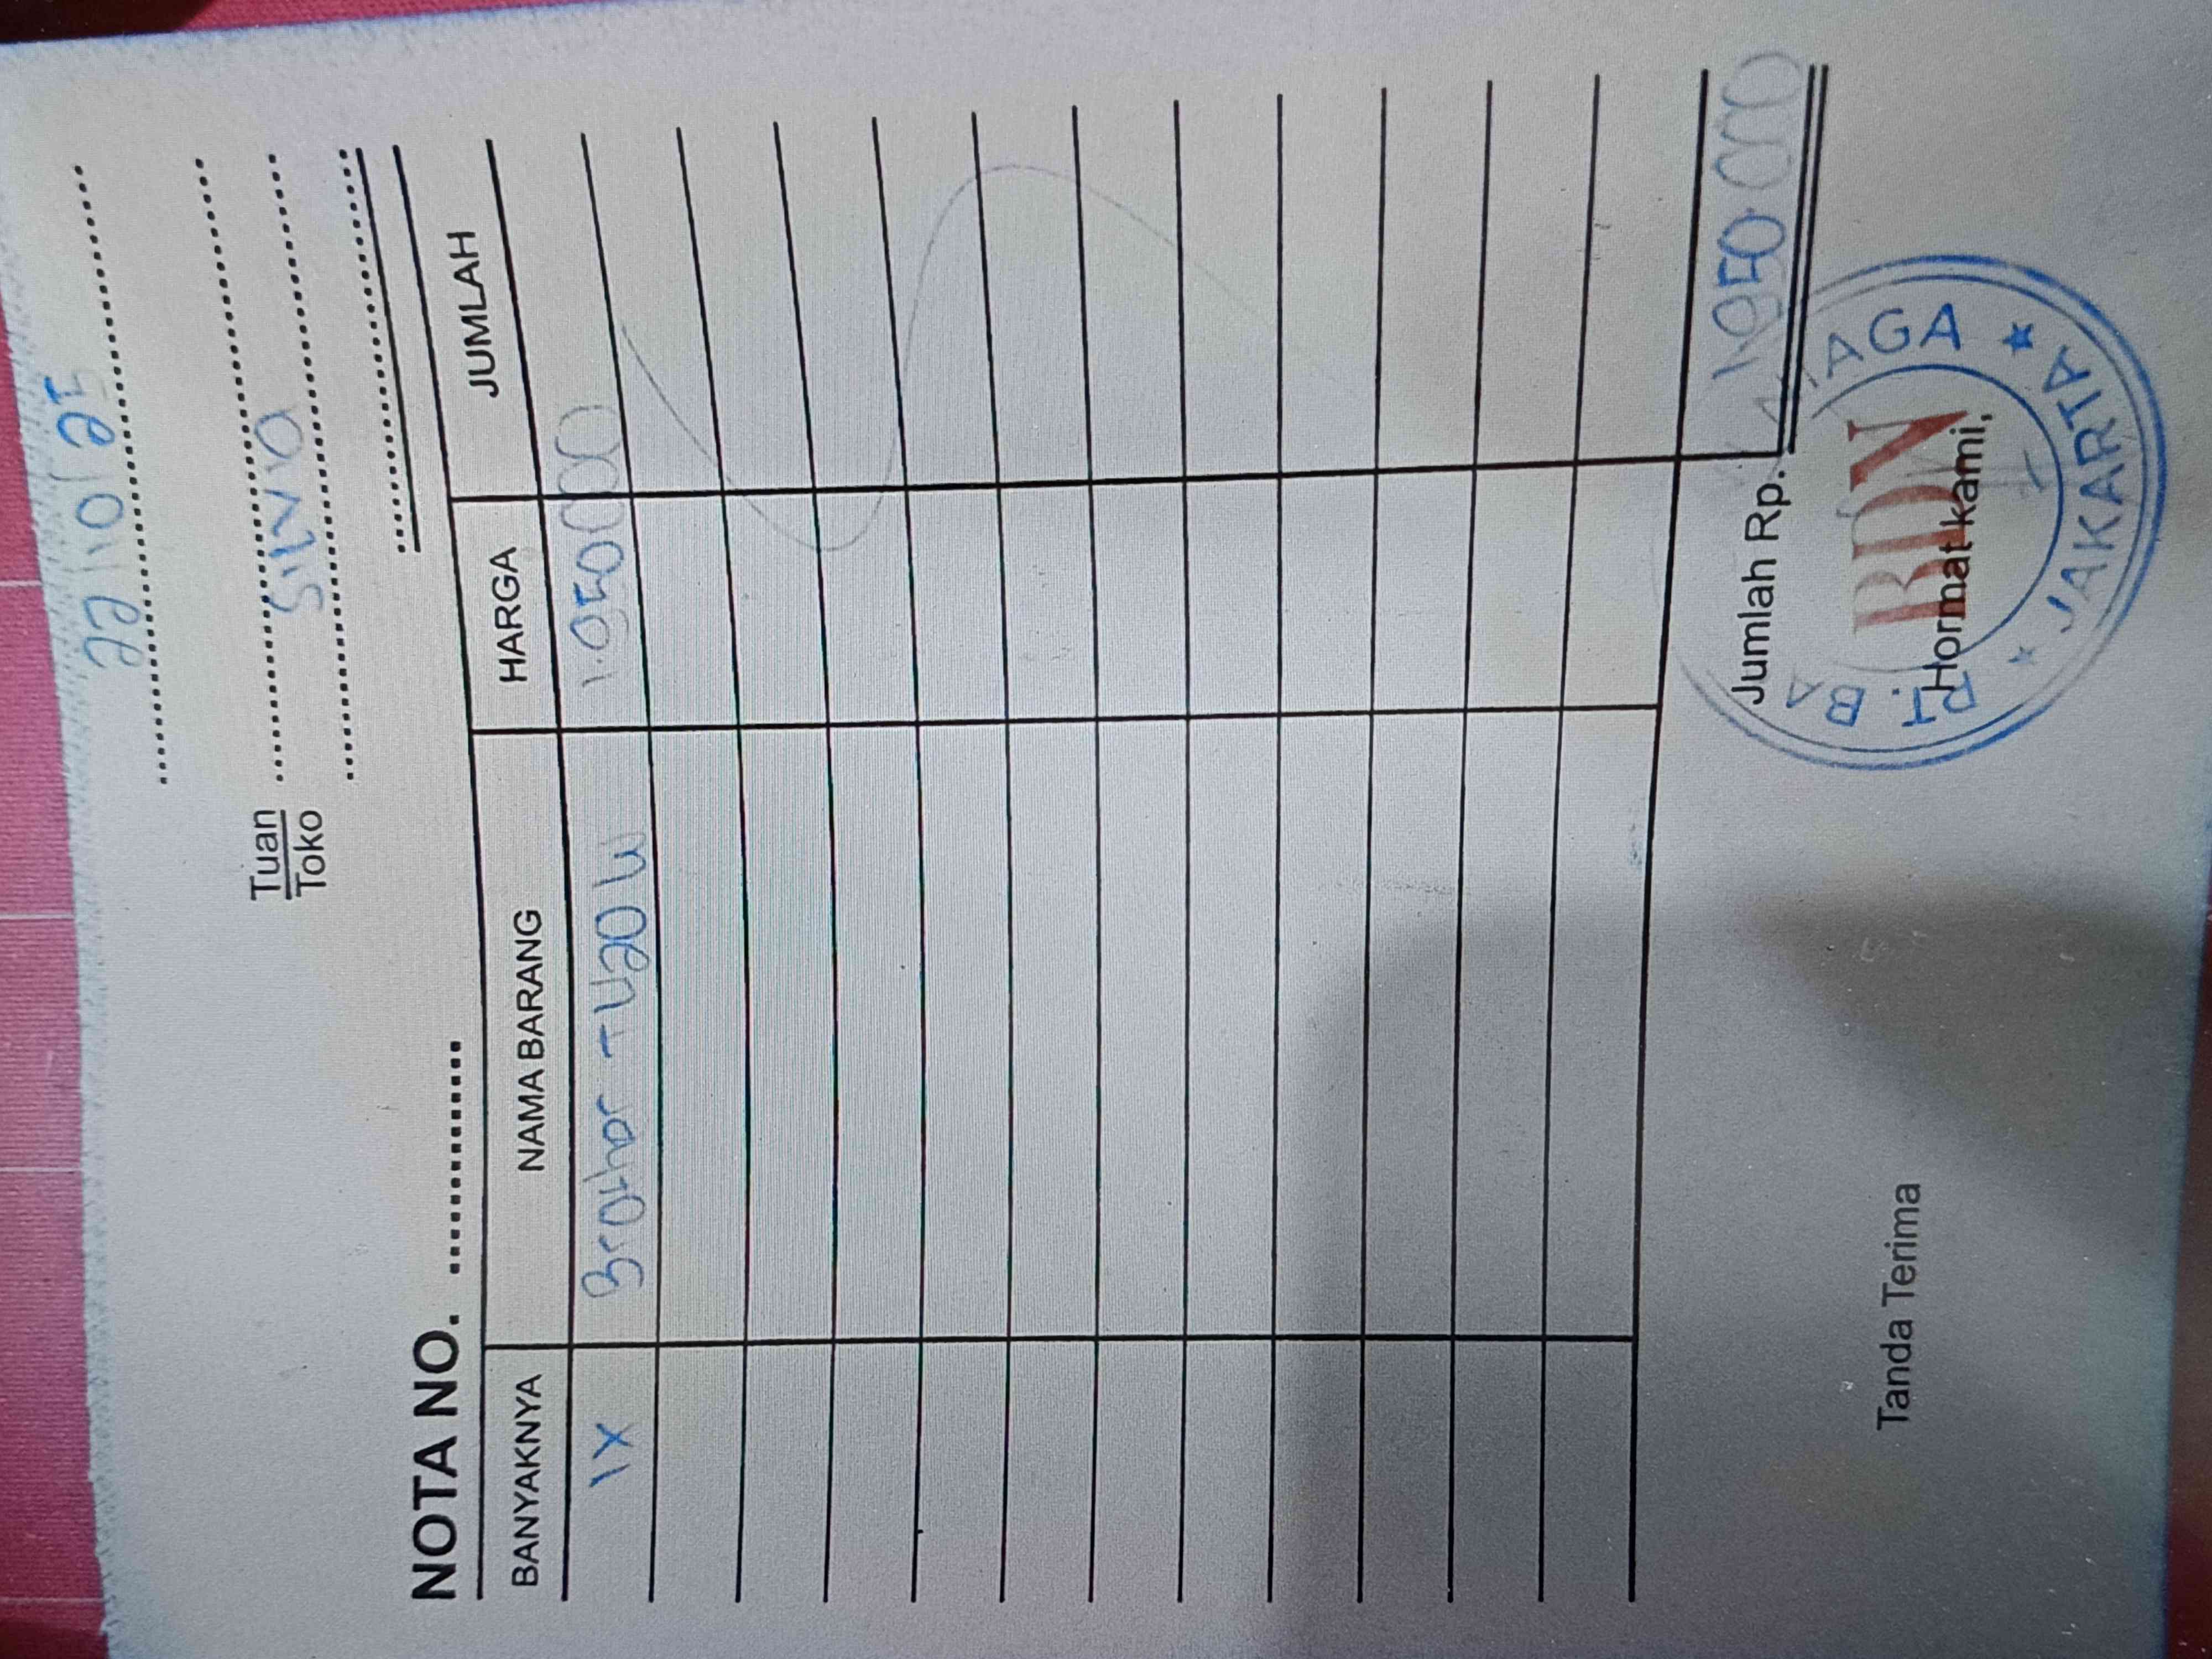 22/10/21
Tuan
Toko
Silvia
NOTA NO.
BANYAKNYA NAMA BARANG HARGA JUMLAH
1X Brother T420W 1.950000
Jumlah Rp. 1.950.000
Tanda Terima Hormat kami,
PT. BA AGA
BDN
JAKARTA